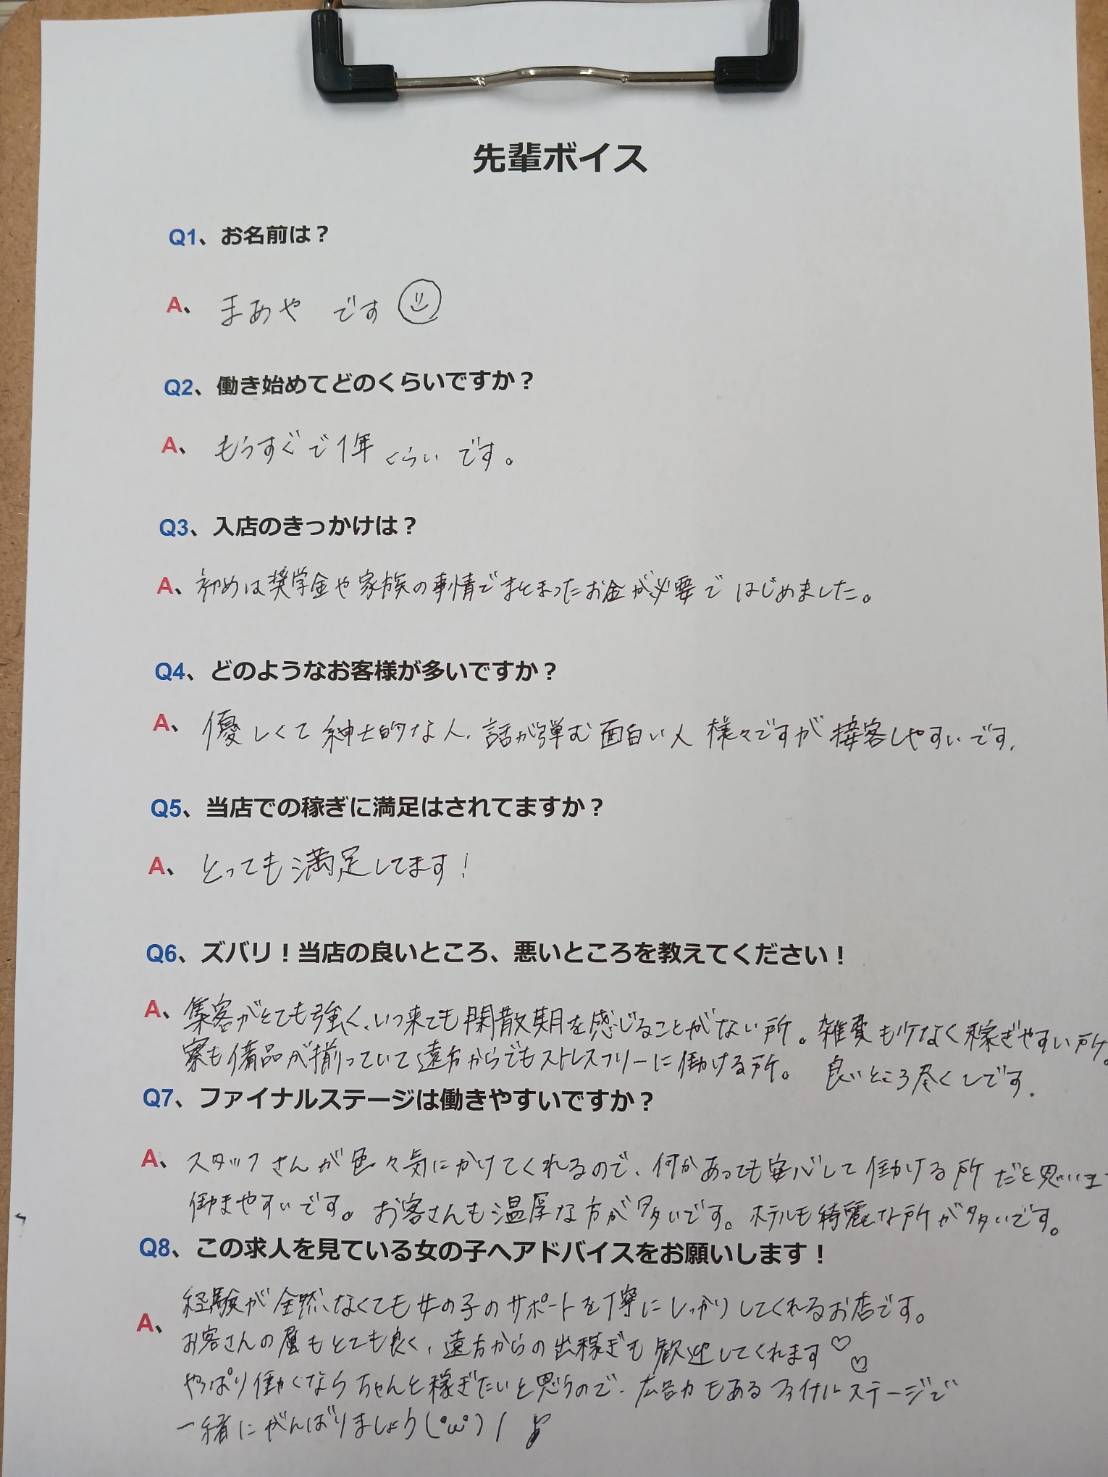 先輩ボイス
Q1、お名前は？
A、まあや です
Q2、働き始めてどのくらいですか？
A、もうすぐで1年くらいです。
Q3、入店のきっかけは？
A、初めは奨学金や家族の事情でまとまったお金が必要ではじめました。
Q4、どのようなお客様が多いですか？
A、優しくて紳士的な人、話が弾む面白い人 様々ですが接客しやすいです。
Q5、当店での稼ぎに満足はされてますか？
A、とっても満足してます！
Q6、ズバリ！当店の良いところ、悪いところを教えてください！
A、集客がとても強く、いつ来ても閑散期を感じることがない所。雑費も少なく稼ぎやすい所。
寮も備品が揃っていて遠方からでもストレスフリーに働ける所。 良いところ尽くしです。
Q7、ファイナルステージは働きやすいですか？
A、スタッフさんが色々気にかけてくれるので、何かあっても安心して働ける所だと思いま
働きやすいです。お客さんも温厚な方が多いです。ホテルも綺麗な所が多いです。
Q8、この求人を見ている女の子へアドバイスをお願いします！
A、経験が全然なくても女の子のサポートを丁寧にしっかりしてくれるお店です。
お客さんの層もとても良く、遠方からの出稼ぎも歓迎してくれます♡♡
やっぱり働くならちゃんと稼ぎたいと思うので、広告力もあるファイナルステージで
一緒にがんばりましょう(°ω°)/♪